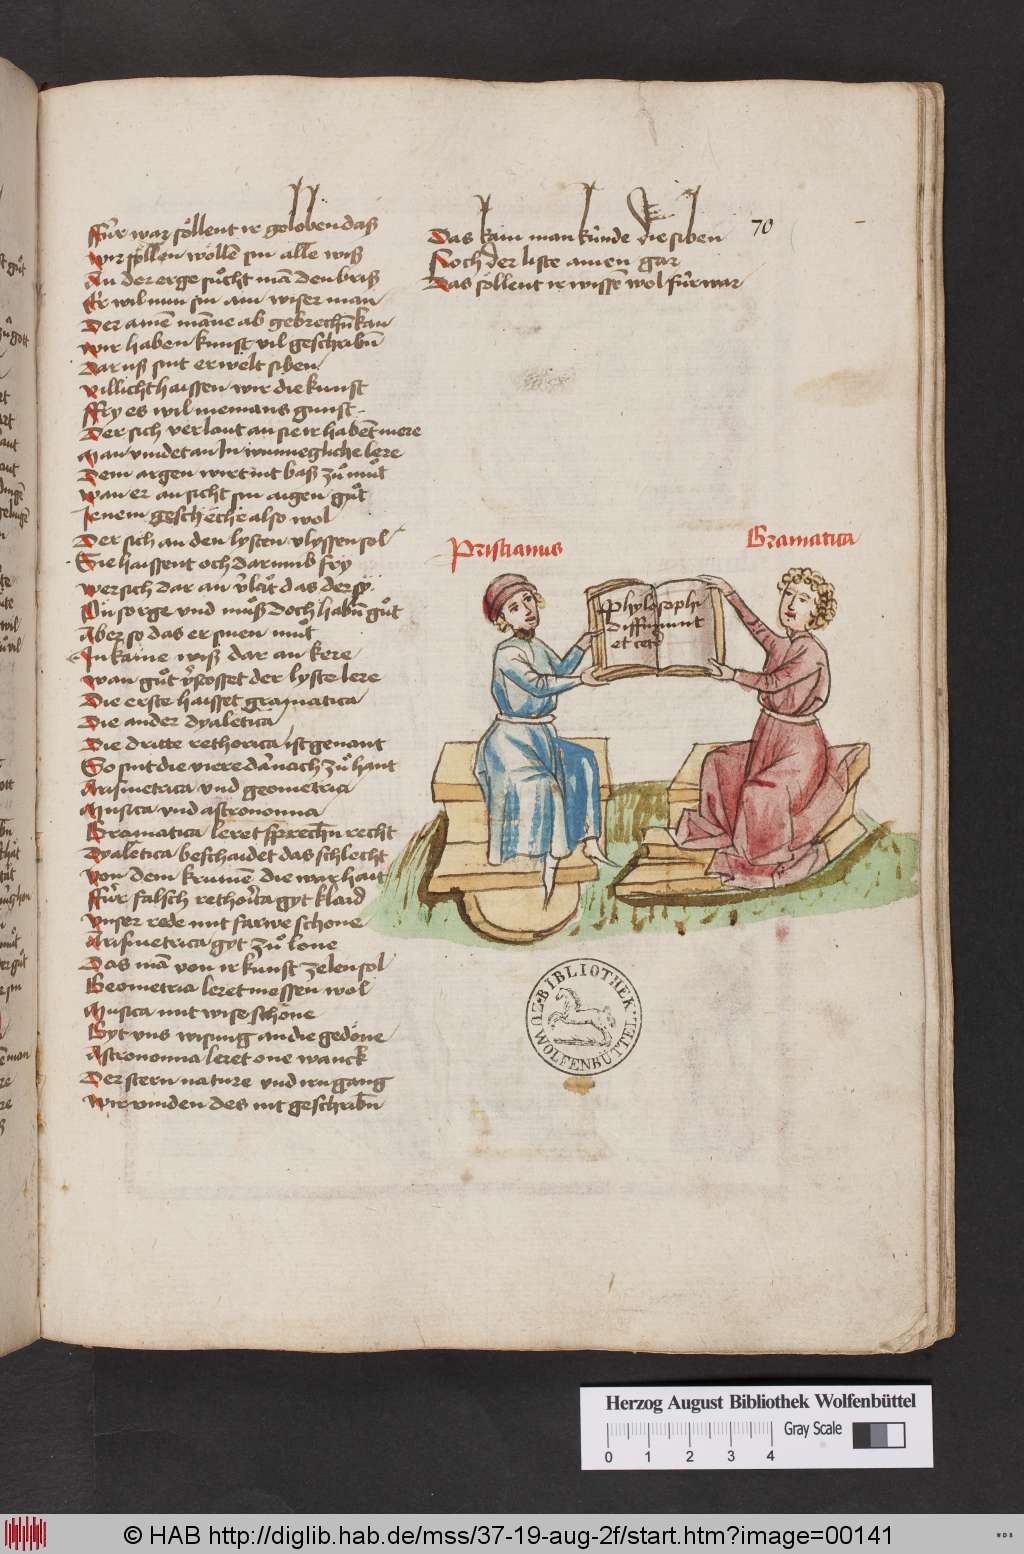 70
Ffúr war söllent ir goloben daß
Wir söllen wöllē sin alle wiß
An der erge sůcht mā den briß
Er wil nun sin ain wiser man
Der amē mā ne ab gebrechn̄ kan
Wir haben kunst vil geschribn̄
Dar uß sint erwelt siben
Villicht haissen wir die kunst
Ffry es wil niemans gunst
Der sich verlaut an sie ir habent mere
Man vindet an In wunnegliche lere
Dem argen wirt nit baß zů můt
Wan er an sicht sin aigen gůt
Jenem geschēche also wol
Der sich an den lysten vlyssen sol
Sie haissent och darumb fry
Wer sich dar an v̄lat das der sy
On sorge vnd muß doch habn̄ gůt
Aber so das er sinen můt
In kaine wiß dar an kere
Wan gůt v̄stosset der lyste lere
Die erste haisset gramatica
Die ander dyaletica
Die dritte rethorica ist genant
So sint die viere dārnach zů hant
Arismetrica vnd geometrica
Musica vnd astronomia
Gramatica leret sprechn̄ recht
Dyaletica beschaidet das schlecht
Von dem krumē die warhait
Ffúr falsch rethor̄ica gyt klaid
Vnser rede mit farwe schone
Arismetrica gyt zů lone
Das mā von ir kunst zelen sol
Geometria leret messen wol
Musica mit wise schöne
Gyt vns wisung an die gedöne
Astronomia leret one wanck
Der stern nature vnd irn gang
Wir vinden des nit geschribn̄
Das kain man kúnde die siben
Noch der liste ainen gar
Das söllent ir wissē wol fúr war
Pristianus
Gramatica
Phylosophi
diffiniunt
et cetr̄
BIBLIOTHEK ZU WOLFENBÜTTEL
Herzog August Bibliothek Wolfenbüttel
Gray Scale
0 1 2 3 4
© HAB http://diglib.hab.de/mss/37-19-aug-2f/start.htm?image=00141